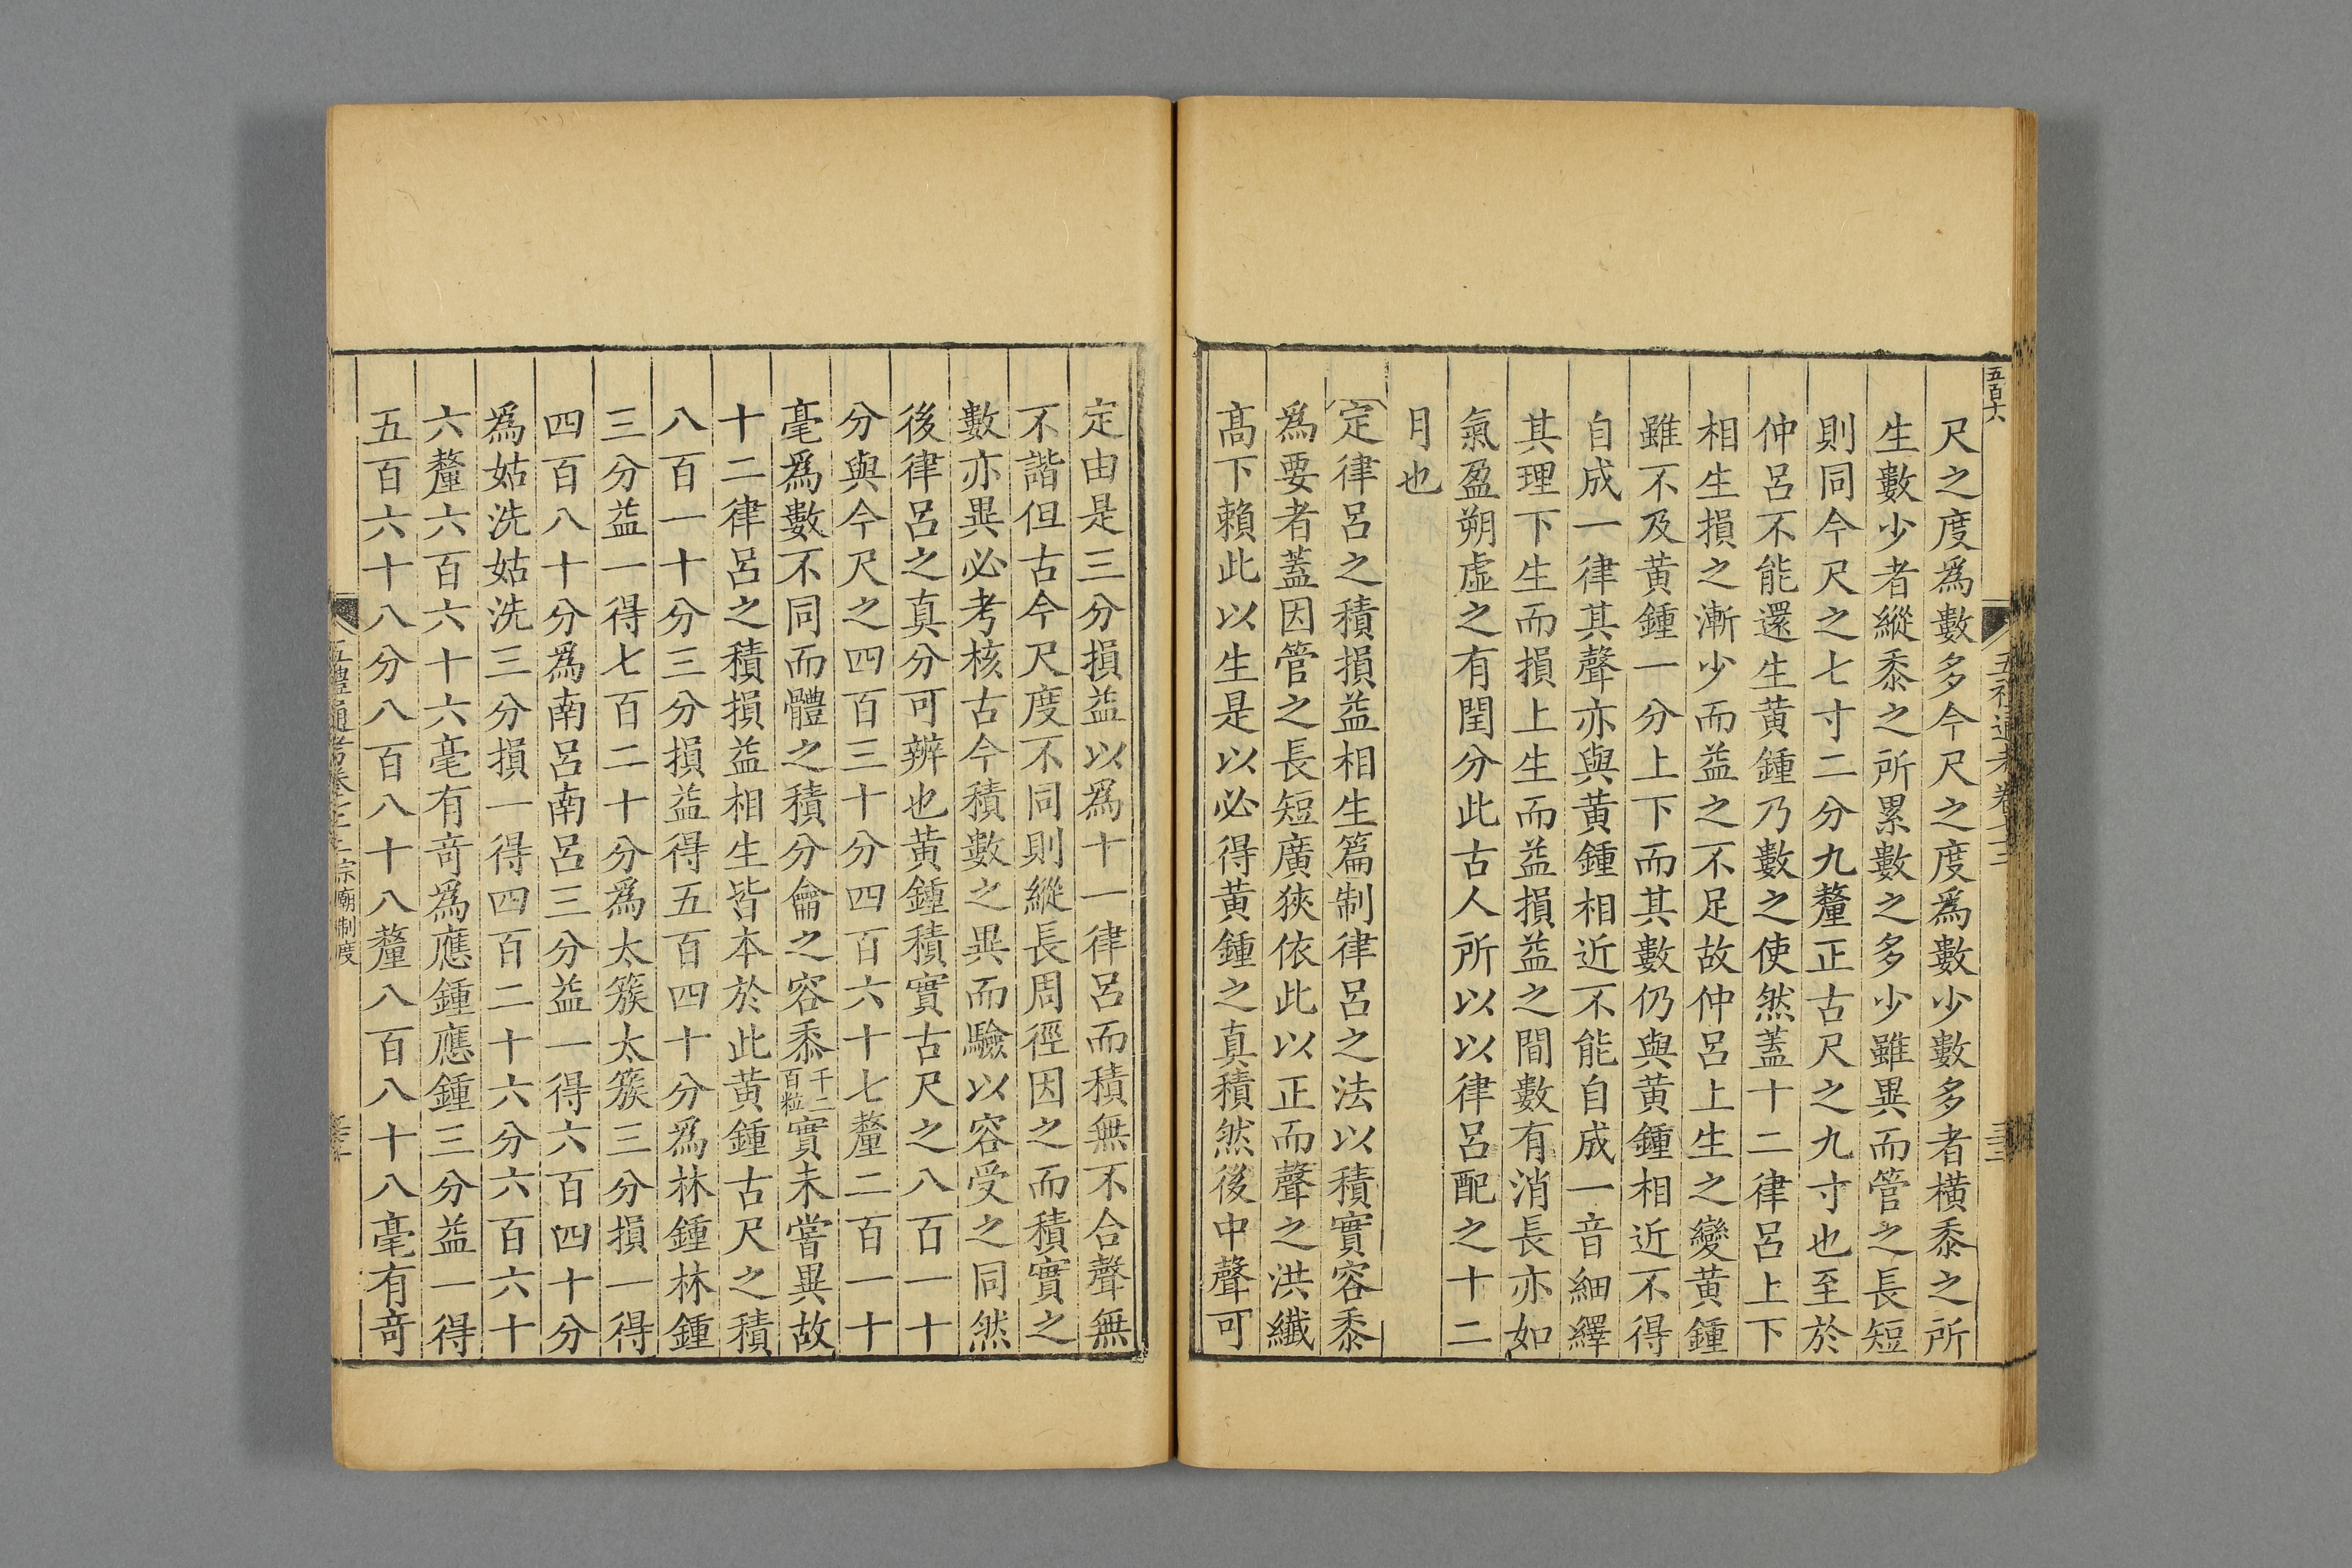 五百十六
尺之度爲數多今尺之度爲數少數多者橫黍之所
生數少者縱黍之所累數之多少雖異而管之長短
則同今尺之七寸二分九釐正古尺之九寸也至於
仲呂不能還生黃鍾乃數之使然蓋十二律呂上下
相生損之漸少而益之不足故仲呂上生之變黃鍾
雖不及黃鍾一分上下而其數仍與黃鍾相近不得
自成一律其聲亦與黃鍾相近不能自成一音細繹
其理下生而損上生而益損益之間數有消長亦如
氣盈朔虛之有閏分此古人所以以律呂配之十二
月也
定律呂之積損益相生篇制律呂之法以積實容黍
爲要者蓋因管之長短廣狹依此以正而聲之洪纖
高下賴此以生是以必得黃鍾之真積然後中聲可
定由是三分損益以爲十一律呂而積無不合聲無
不諧但古今尺度不同則縱長周徑因之而積實之
數亦異必考核古今積數之異而驗以容受之同然
後律呂之真分可辨也黃鍾積實古尺之八百一十
分與今尺之四百三十分四百六十七釐二百一十
毫爲數不同而體之積分龠之容黍千二百粒實未嘗異故
十二律呂之積損益相生皆本於此黃鍾古尺之積
八百一十分三分損益得五百四十分爲林鍾林鍾
三分益一得七百二十分爲太簇太簇三分損一得
四百八十分爲南呂南呂三分益一得六百四十分
爲姑洗姑洗三分損一得四百二十六分六百六十
六釐六百六十六毫有奇爲應鍾應鍾三分益一得
五百六十八分八百八十八釐八百八十八毫有奇
五禮通考卷 宗廟制度